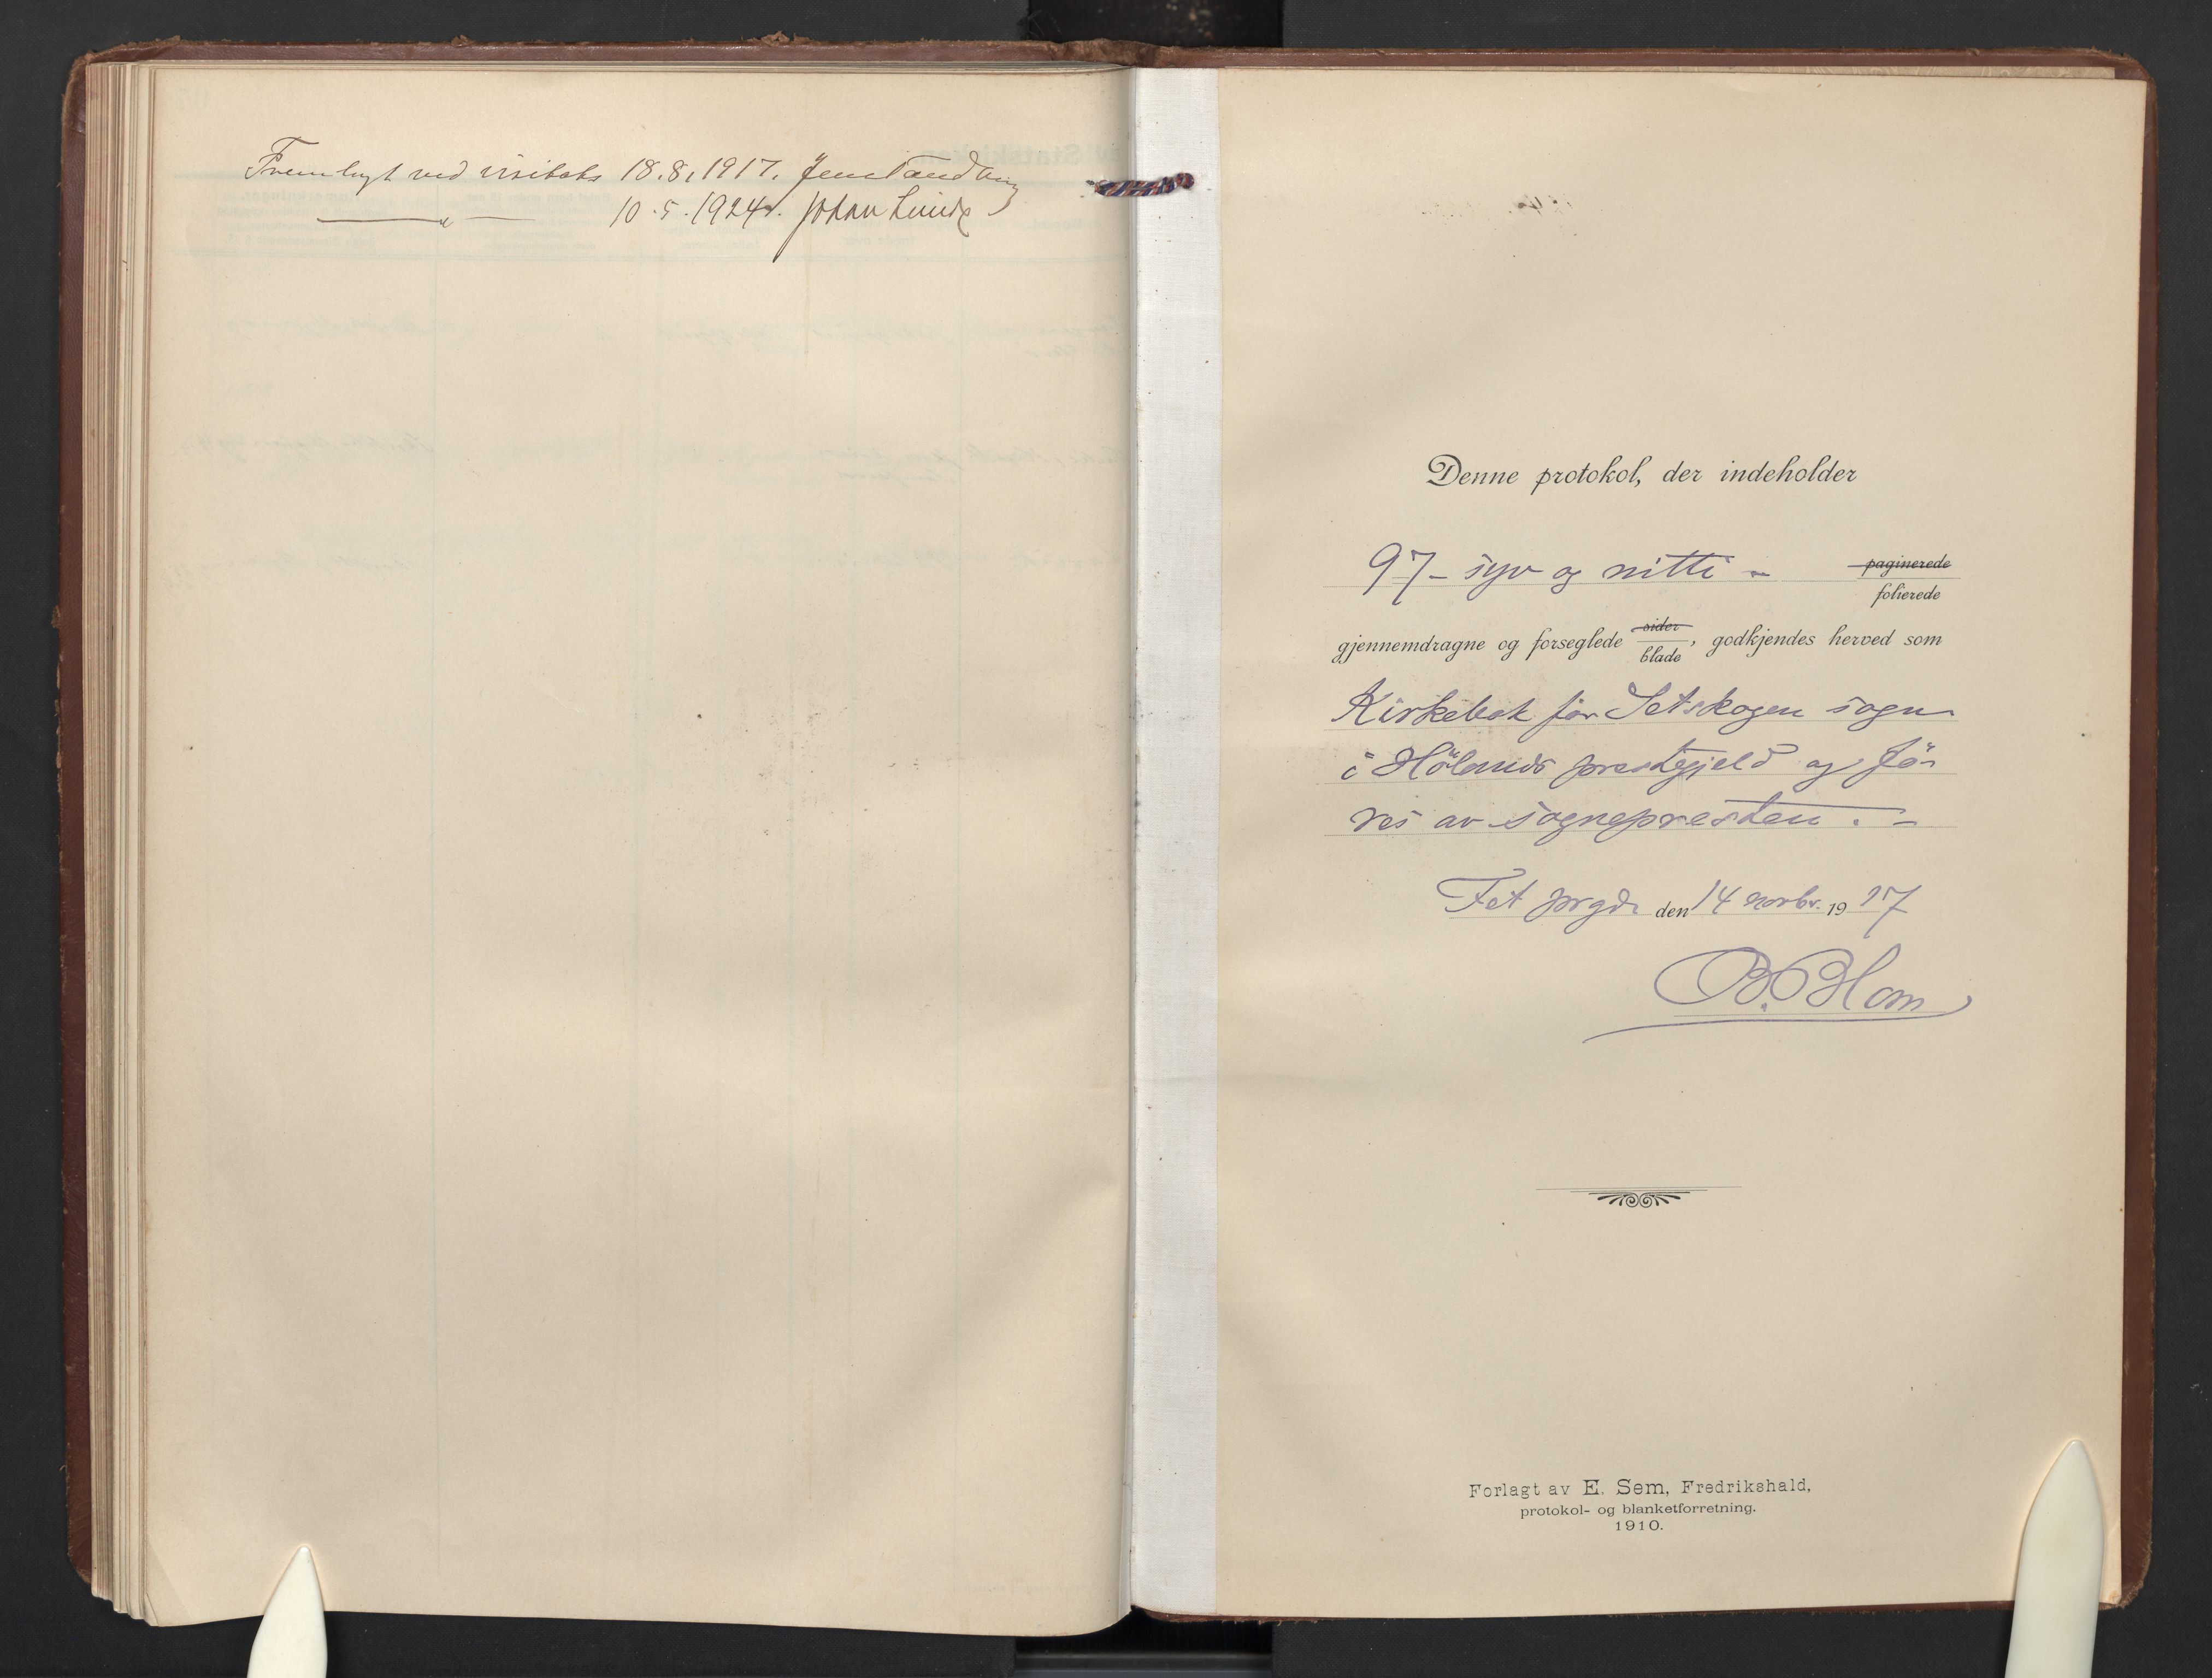 Fremlagt ved visitats 18.8.1917. Jens Tandberg
— " — 10.5.1924. Johan Lunde
Denne protokol, der indeholder
97 - syv og nitti - paginerede
folierede
gjennemdragne og forseglede sider
blade, godkjendes herved som
Kirkebok for Setskogen sogn
i Hölands prestegjeld og fö-
res av sognepresten. -
Fet prgd. den 14 novbr. 1917
B. Blom
Forlagt av E. Sem, Fredrikshald,
protokol- og blanketforretning.
1910.